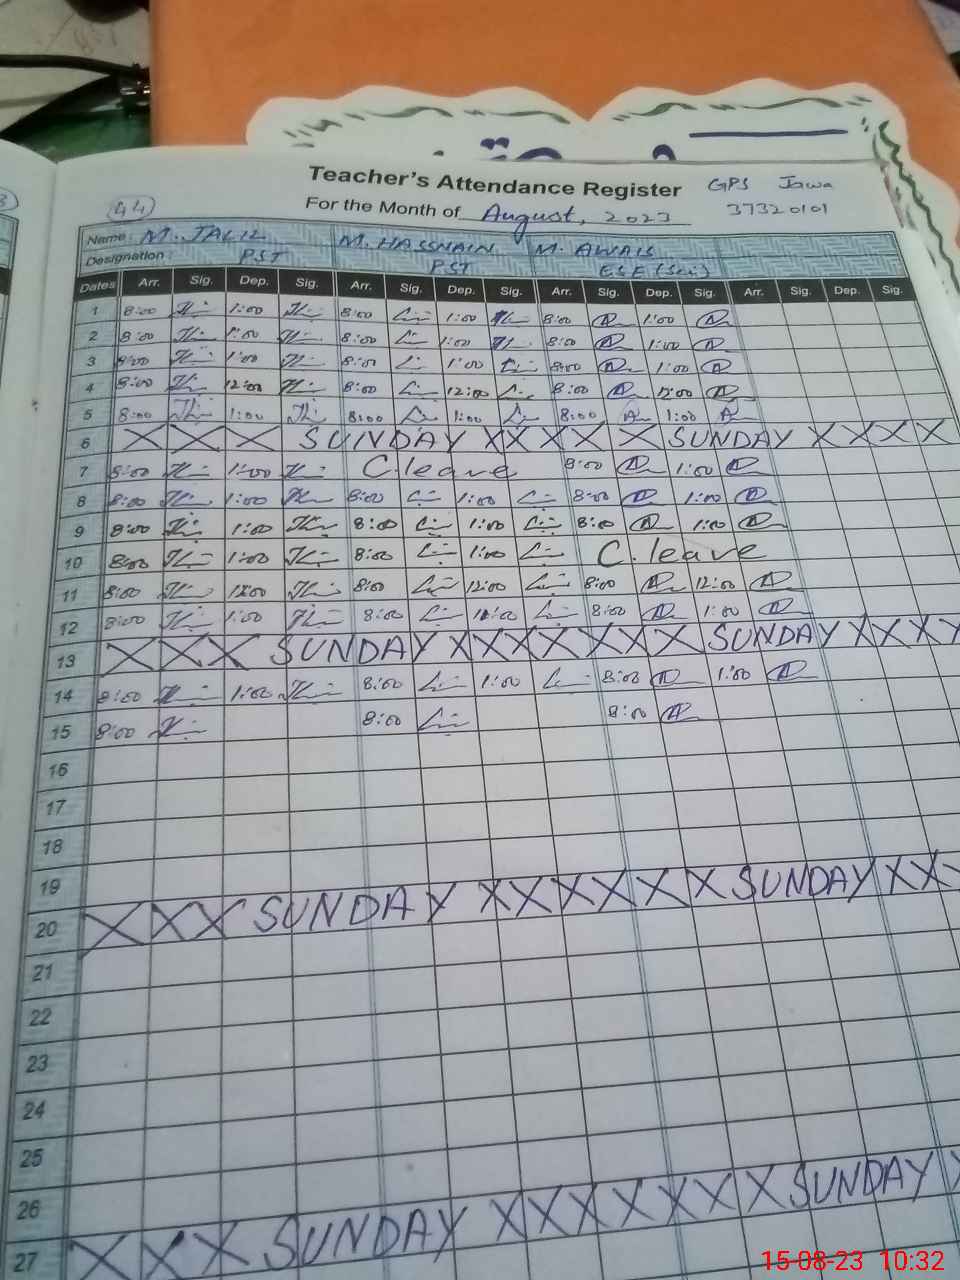 Teacher's Attendance Register GPS Jawa
For the Month of August, 2023 37320101
44
Name: M. JALIL M. HASSNAIN M. AWAIS
Designation: PST PST ESE (Sci)
Dates Arr. Sig. Dep. Sig. Arr. Sig. Dep. Sig. Arr. Sig. Dep. Sig. Arr. Sig. Dep. Sig.
1 8:00 1:00 8:00 1:00 8:00 1:00
2 8:00 1:00 8:00 1:00 8:00 1:00
3 8:00 1:00 8:00 1:00 8:00 1:00
4 8:00 12:00 8:00 12:00 8:00 12:00
5 8:00 1:00 8:00 1:00 8:00 1:00
6 X X X SUNDAY X X X X X SUNDAY X X X X
7 8:00 1:00 C.leave 8:00 1:00
8 8:00 1:00 8:00 1:00 8:00 1:00
9 8:00 1:00 8:00 1:00 8:00 1:00
10 8:00 1:00 8:00 1:00 C.leave
11 8:00 12:00 8:00 12:00 8:00 12:00
12 8:00 1:00 8:00 8:00 1:00
13 X X X SUNDAY X X X X X X X SUNDAY X X X X
14 8:00 1:00 8:00 1:00 8:00 1:00
15 8:00 8:00 8:00
16
17
18
19
20 X X X SUNDAY X X X X X X SUNDAY X X X
21
22
23
24
25
26
27 X X X SUNDAY X X X X X X X SUNDAY X
15-08-23 10:32